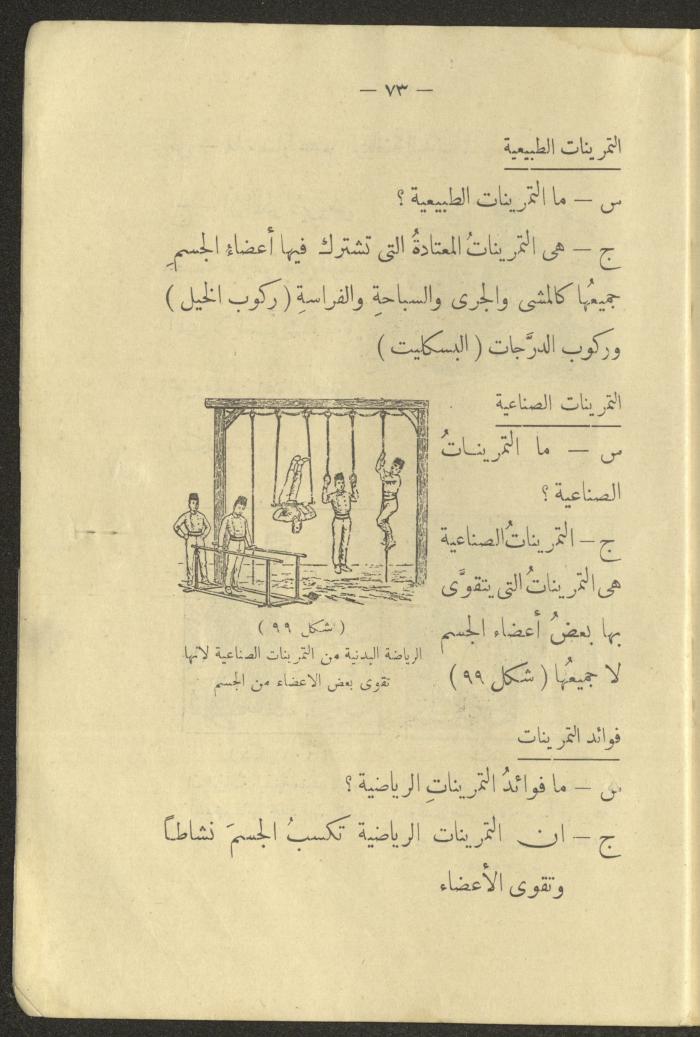 — ٧٣ —
التمرينات الطبيعية
س — ما التمرينات الطبيعية ؟
ج — هى التمريناتُ المعتادةُ التى تشترك فيها أعضاءُ الجسمِ
جميعُها كالمشى والجرى والسباحةِ والفراسةِ ( ركوب الخيل )
وركوب الدرَّجات ( البسكليت )
التمرينات الصناعية
س — ما التمرينــاتُ
الصناعية ؟
ج — التمريناتُ الصناعية
هى التمريناتُ التى يتقوَّى
بها بعضُ أعضاء الجسم
لا جميعُها ( شكل ٩٩ )
( شكل ٩٩ )
الرياضة البدنية من التمرينات الصناعية لانها
تقوى بعض الاعضاء من الجسم
فوائد التمرينات
س — ما فوائدُ التمريناتِ الرياضية ؟
ج — ان التمرينات الرياضية تكسبُ الجسمَ نشاطاً
وتقوى الأعضاء